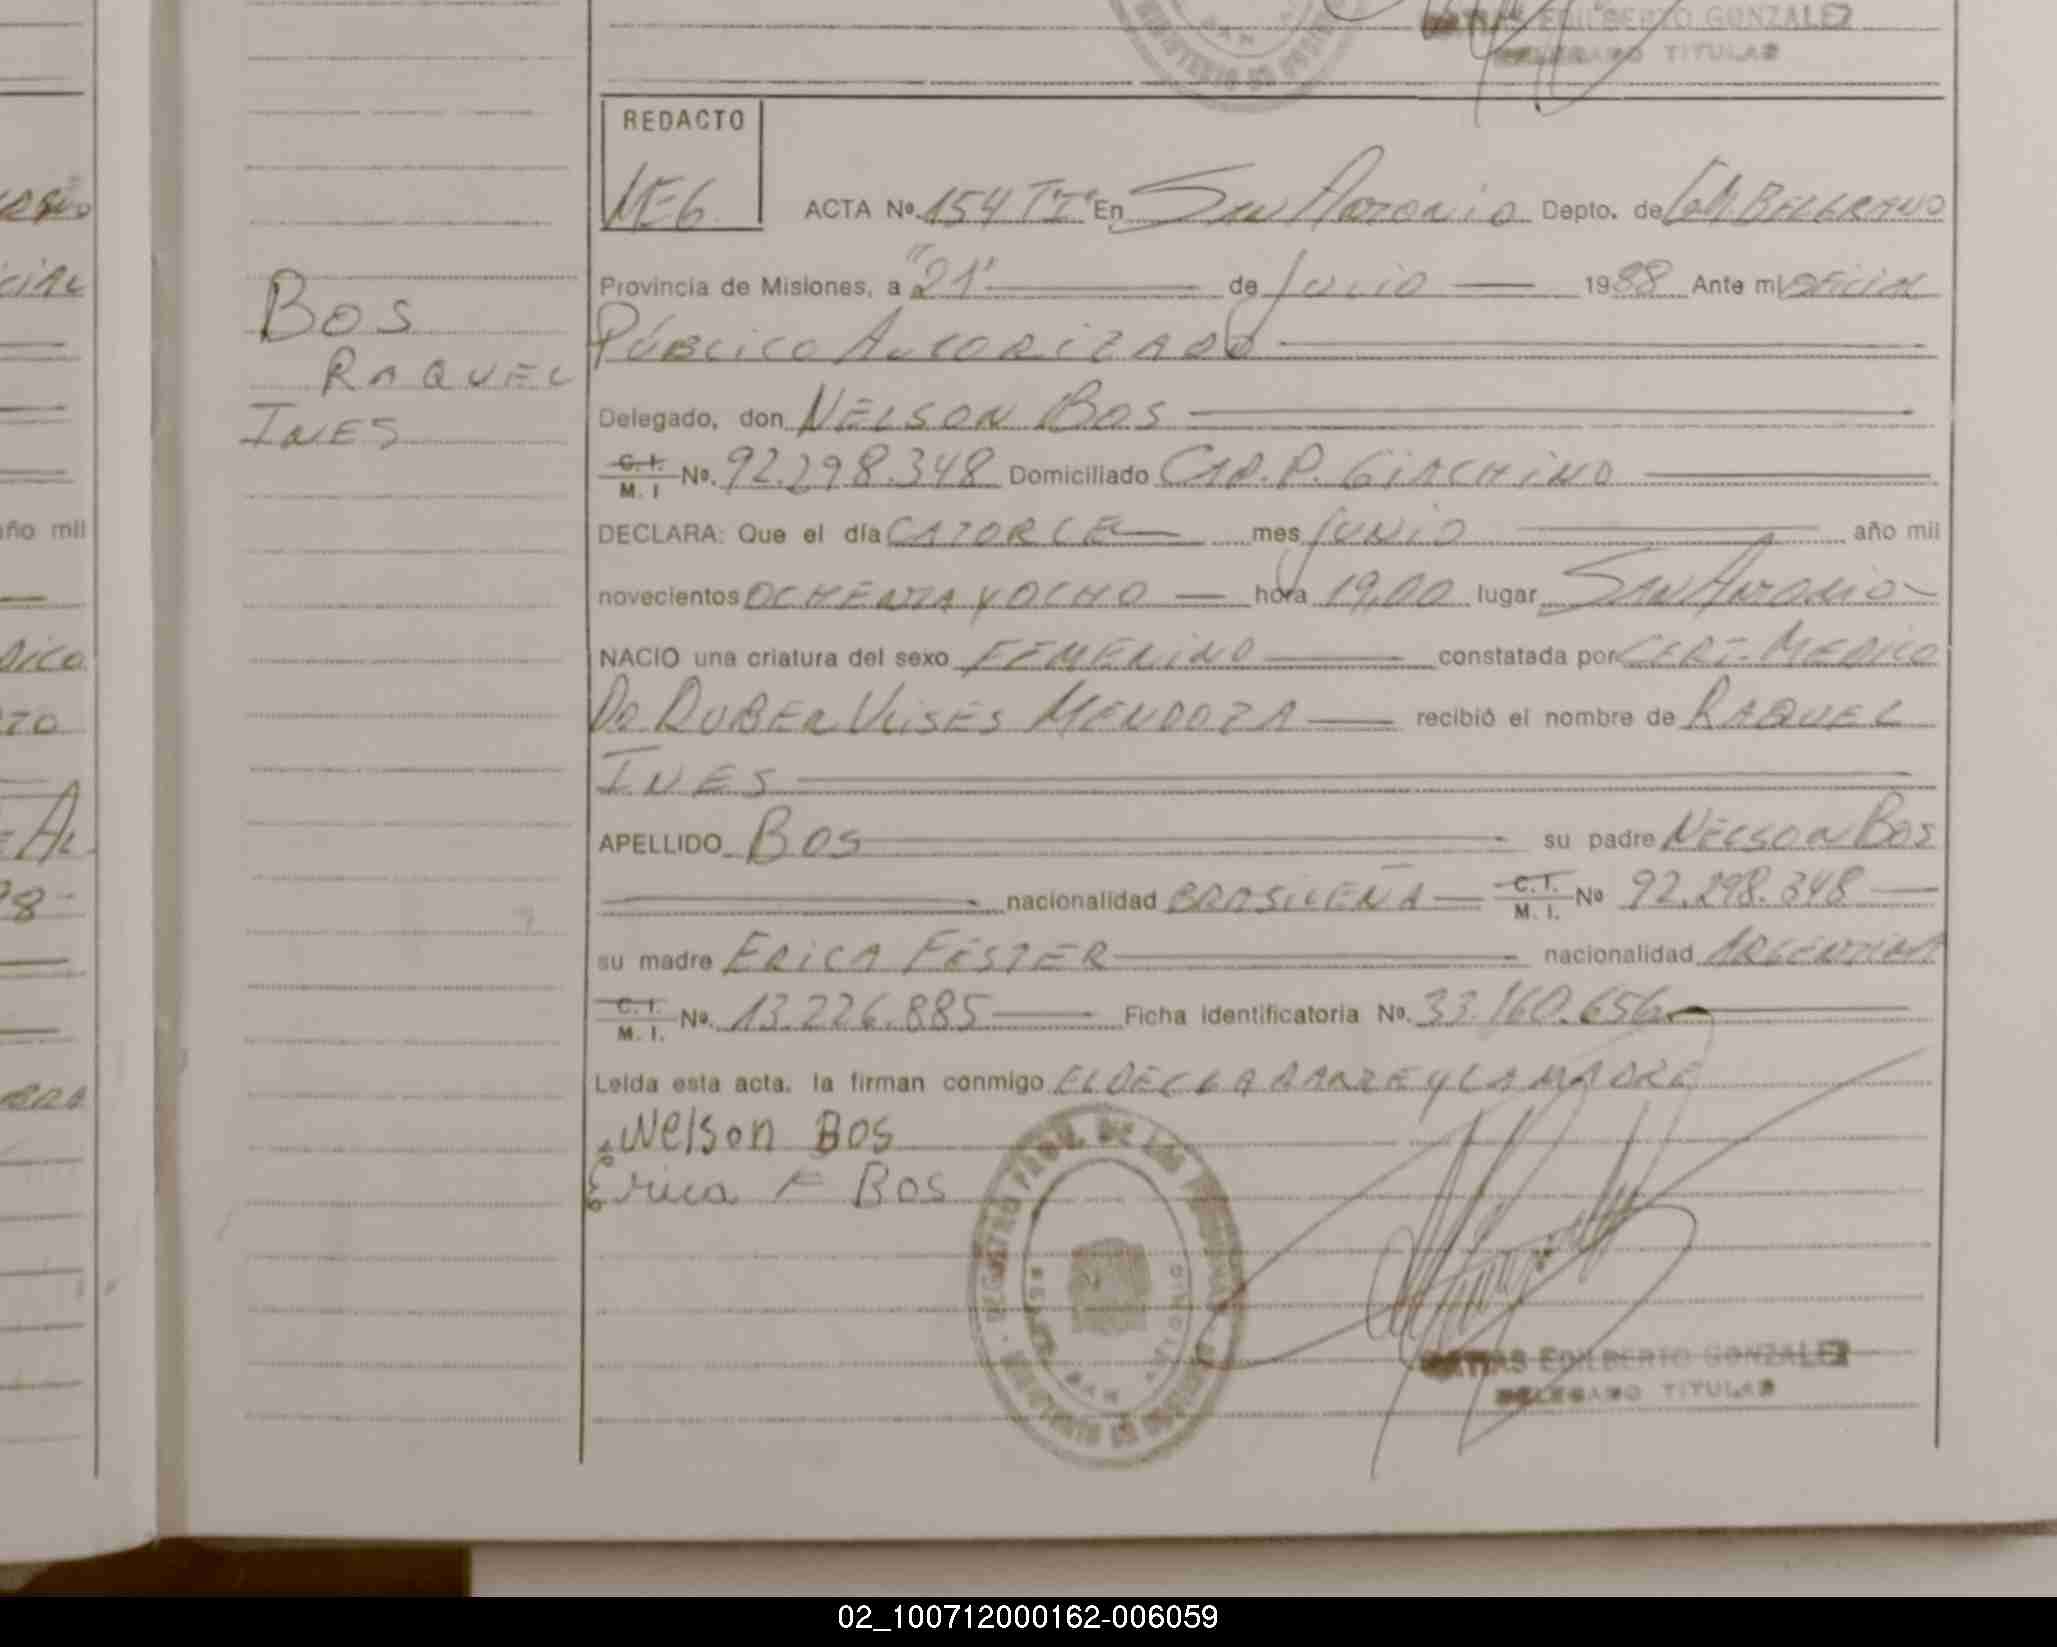 MATIAS EDILBERTO GONZALEZ
DELEGADO TITULAR
REDACTO
ACTA Nº 154 TI" En San Antonio Depto. de Gral. M. BELGRANO
Provincia de Misiones, a "21" de Julio 1988 Ante mi OFICIAL
PÚBLICO AUTORIZADO
Delegado, don NELSON BOS
C. I. M. I Nº. 92.298.348 Domiciliado CAP. P. GIACHINO
DECLARA: Que el día CATORCE mes JUNIO año mil
novecientos OCHENTA Y OCHO hora 19,00 lugar San Antonio
NACIO una criatura del sexo FEMENINO constatada por CERT. MEDICO
DR RUBER ULISES MENDOZA recibió el nombre de RAQUEL
INES
APELLIDO BOS su padre NELSON BOS
nacionalidad BRASILEÑA C. I. M. I. Nº 92.298.348
su madre ERICA FESTER nacionalidad ARGENTINA
C. I. M. I. Nº. 13.226.885 Ficha identificatoria Nº. 33.160.656
Leída esta acta, la firman conmigo EL DECLARANTE Y LA MADRE
Nelson Bos
Erica F Bos
MATIAS EDILBERTO GONZALEZ
DELEGADO TITULAR
BOS
RAQUEL
INES
año mil
02_100712000162-006059